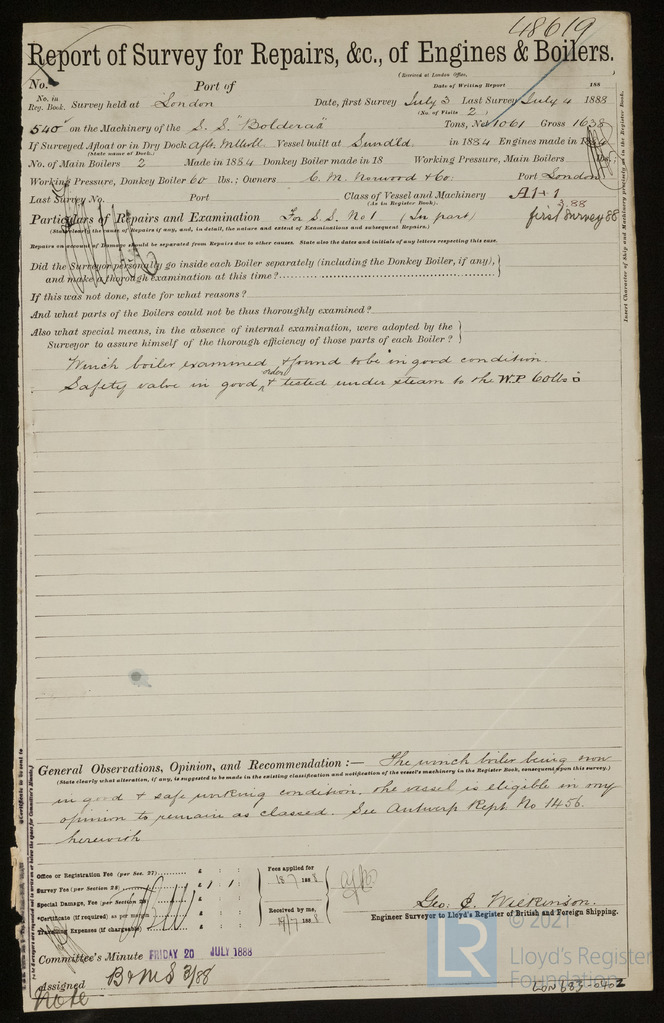 48619
Report of Survey for Repairs, &c., of Engines & Boilers.
(Received at London Office,
No. Port of Date of Writing Report 188
No. in Reg. Book. Survey held at London Date, first Survey July 3 Last Survey July 4 1888
(No. of Visits 2)
540 on the Machinery of the S.S. "Bolderaa" Tons, Net 1061 Gross 1638
If Surveyed Afloat or in Dry Dock Aflt. Millwll. Vessel built at Sund'ld. in 1884 Engines made in 1884
(State name of Dock.)
No. of Main Boilers 2 Made in 1884 Donkey Boiler made in 18 Working Pressure, Main Boilers lbs.;
Working Pressure, Donkey Boiler 60 lbs.; Owners C. M. Norwood & Co. Port London
Last Survey No. Port Class of Vessel and Machinery A1+1
(As in Register Book.) 3.88
Particulars of Repairs and Examination For S.S. No 1 (In part) first survey 88
(State clearly the cause of Repairs if any, and, in detail, the nature and extent of Examinations and subsequent Repairs.)
Repairs on account of Damage should be separated from Repairs due to other causes. State also the dates and initials of any letters respecting this case.
Did the Surveyor personally go inside each Boiler separately (including the Donkey Boiler, if any),
and make a thorough examination at this time?
If this was not done, state for what reasons?
And what parts of the Boilers could not be thus thoroughly examined?
Also what special means, in the absence of internal examination, were adopted by the
Surveyor to assure himself of the thorough efficiency of those parts of each Boiler?
Winch boiler examined & found to be in good condition.
Safety valve in good order & tested under steam to the W.P 60lbs
Insert Character of Ship and Machinery precisely as in the Register Book.
General Observations, Opinion, and Recommendation :— The winch boiler being now
(State clearly what alteration, if any, is suggested to be made in the existing classification and notification of the vessel's machinery in the Register Book, consequent upon this survey.)
in good & safe working condition. the vessel is eligible in my
opinion to remain as classed. See Antwerp Rept. No 1456.
herewith
Office or Registration Fee (per Sec. 27) £ : :
Survey Fee (per Section 28) £ 1 : 1 :
Special Damage, Fee (per Section 28) £ : :
*Certificate (if required) as per margin £ : :
Travelling Expenses (if chargeable) £ : :
Fees applied for
18/7 1888
Received by me,
19/7 1888
Geo. C. Wilkinson.
Engineer Surveyor to Lloyd's Register of British and Foreign Shipping.
Committee's Minute FRIDAY 20 JULY 1888
Assigned B & MS 3/88
Note
© 2021
LR
Lloyd's Register
Foundation
LON 683-0402